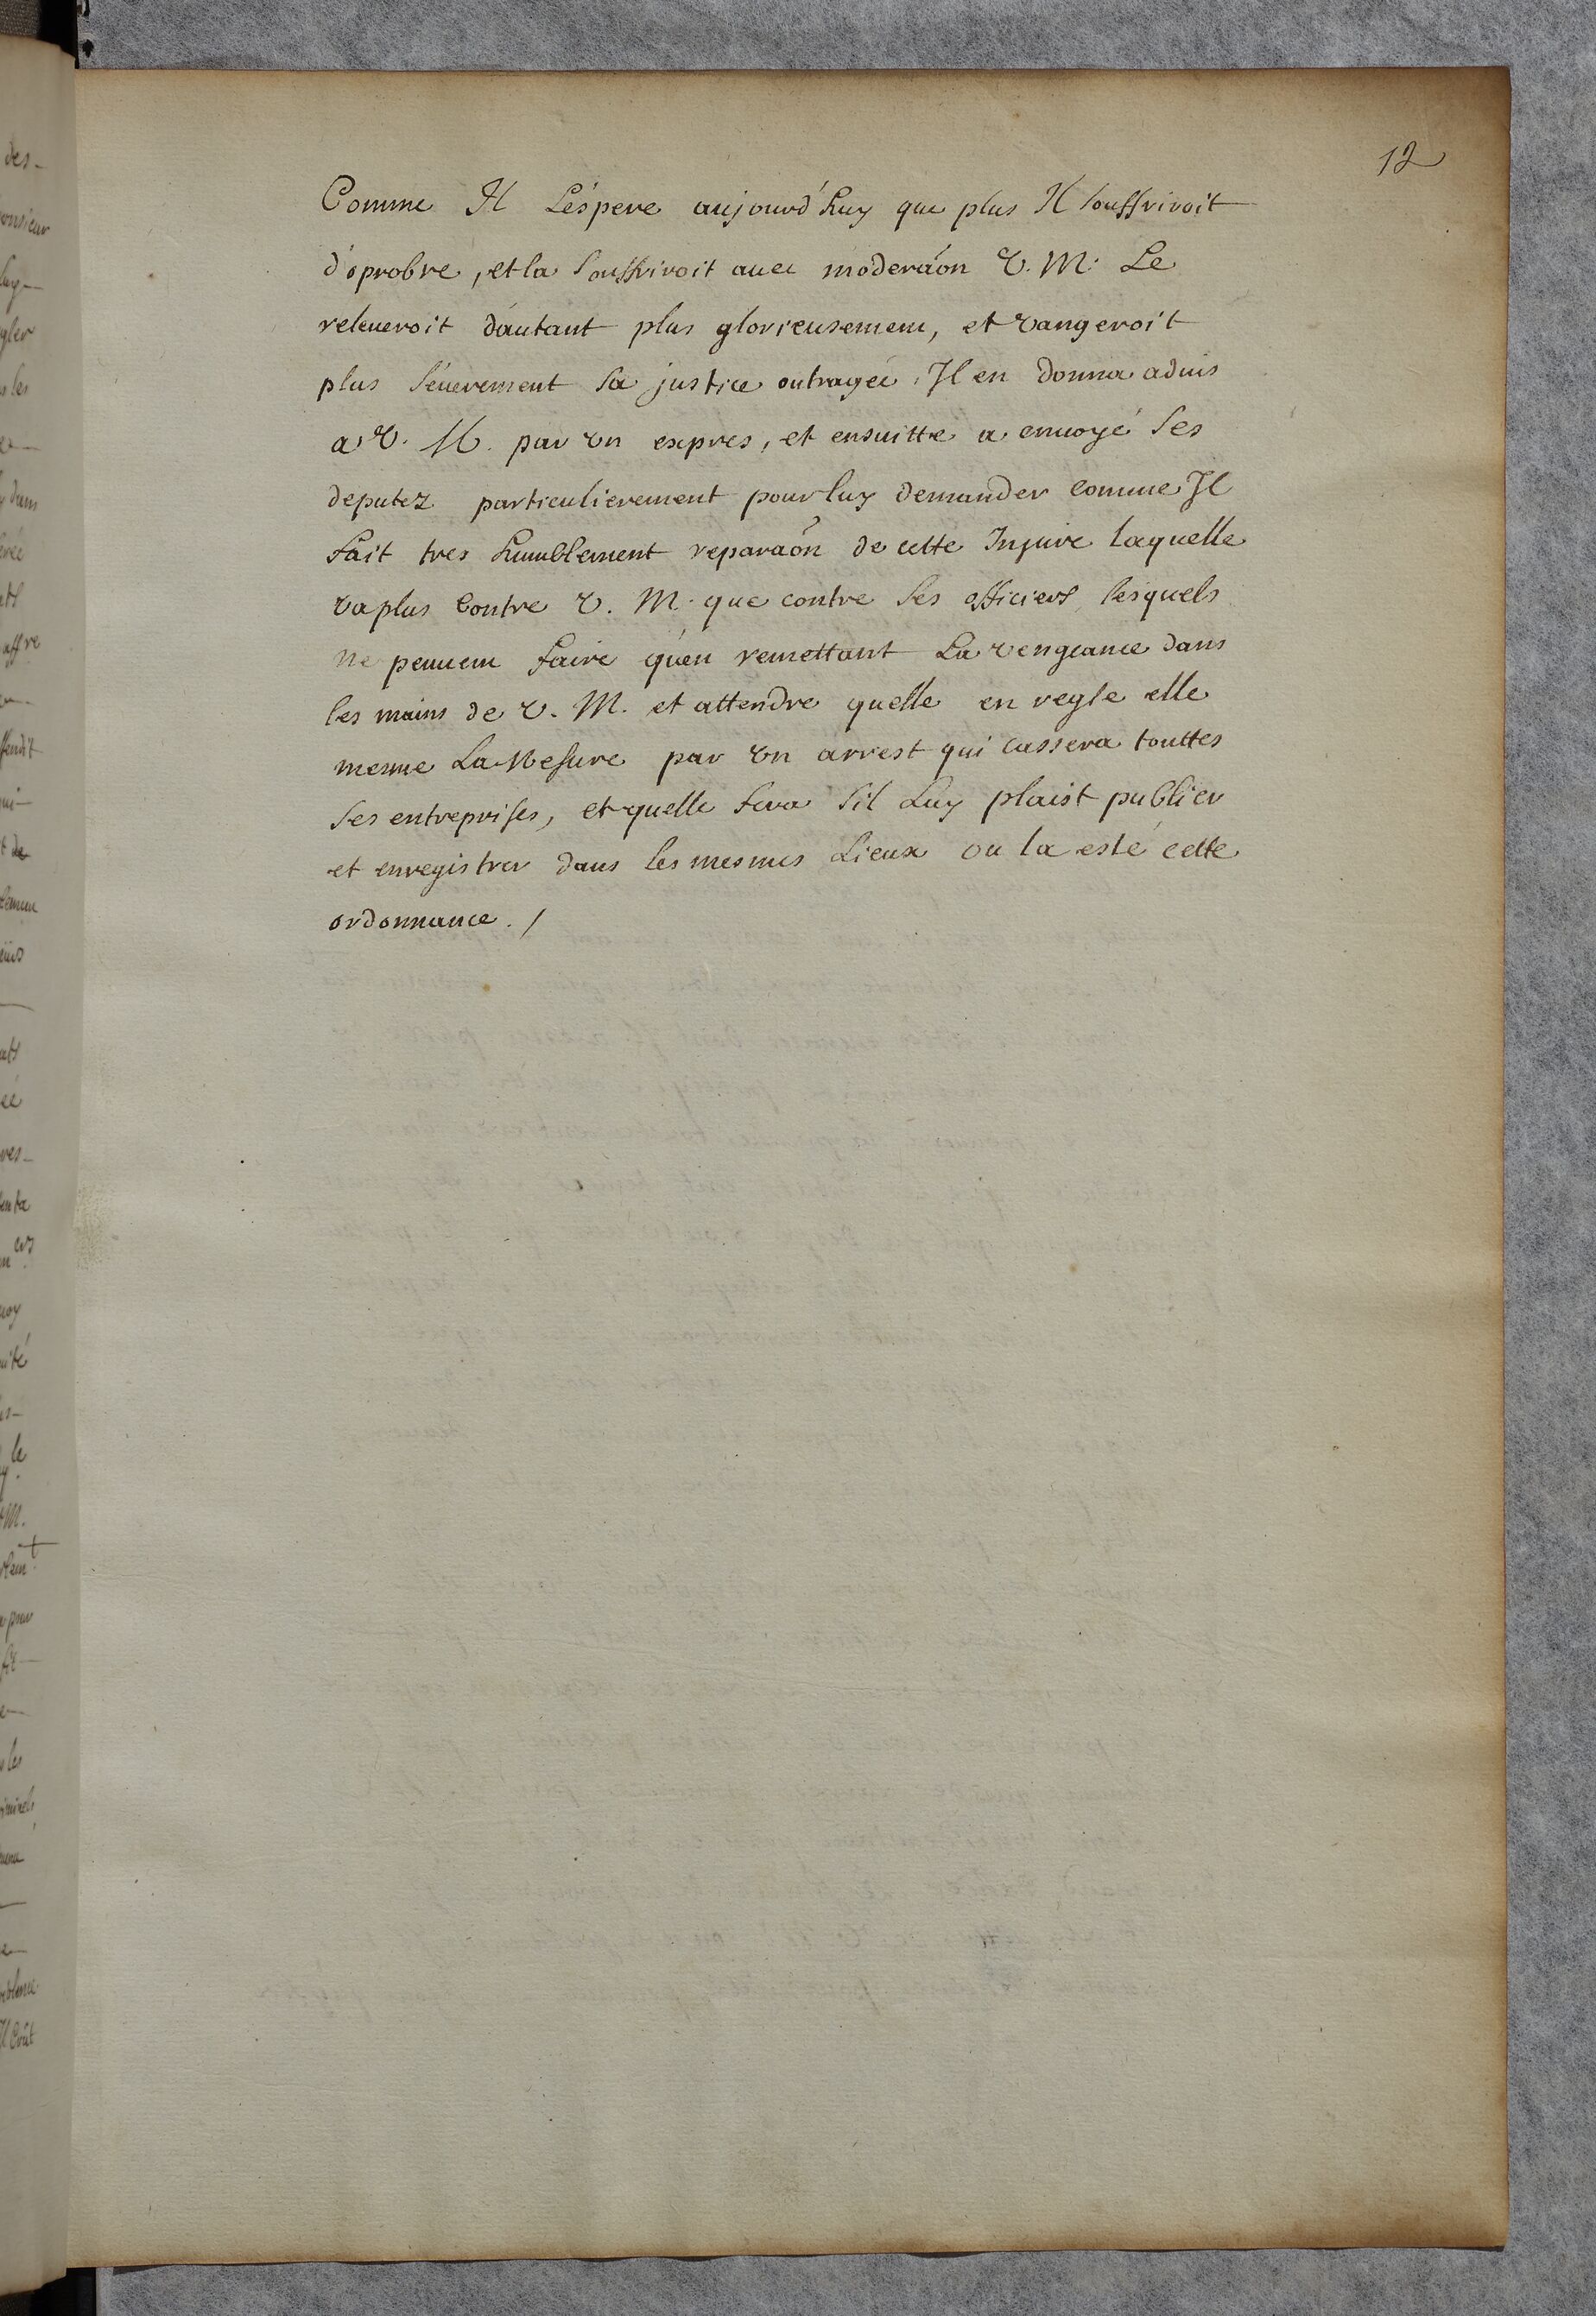 12
Comme Il L'éspere aujourd'huy que plus Il souffriroit
d'oprobre, et la souffriroit auec moderaõn V. M. Le
releueroit d'autant plus glorieusement, et vangeroit
plus séuerement sa justice outragée, Il en donna aduis
a V. M. par vn expres, et ensuitte a enuoyé ses
deputez particulierement pour luy demander comme Il
fait tres humblement reparaõn de cette Injure laquelle
va plus contre V. M. que contre ses officiers, lesquels
ne peuuent faire qu'en remettant La vengeance dans
les mains de V. M. et attendre quelle en regle elle
mesme La Mesure par vn arrest qui cassera touttes
ses entreprises, et quelle fera sil Luy plaist publier
et enregistrer dans les mesmes Lieux ou la esté cette
ordonnance. /